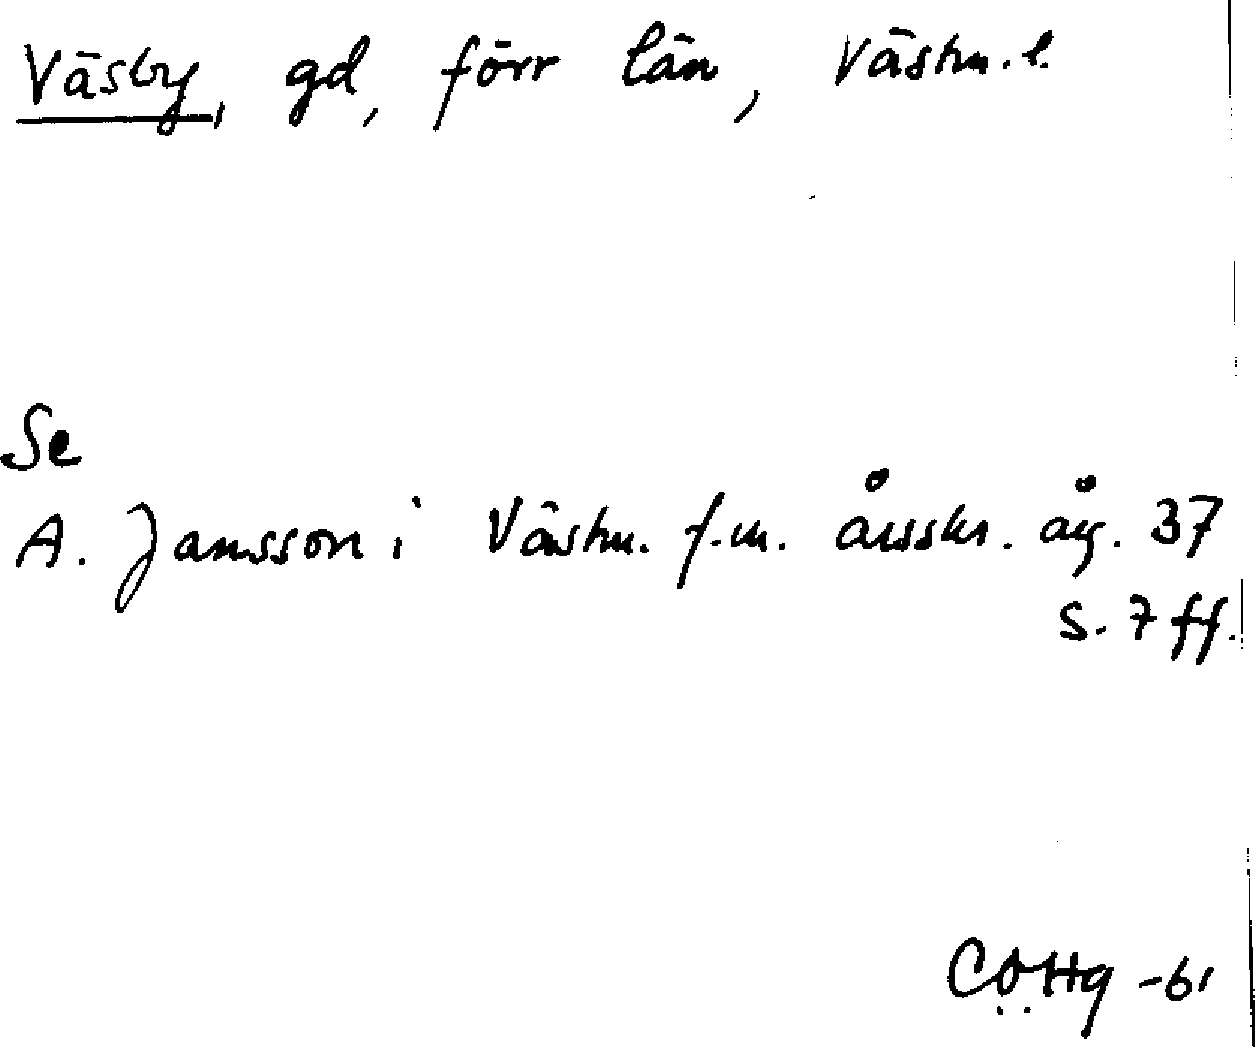 Väsby, gd, förr län, Västm. l.
Se
A. Jansson i Västm. f.m. årsskr. årg. 37
s. 7 ff.
CÖHg -61